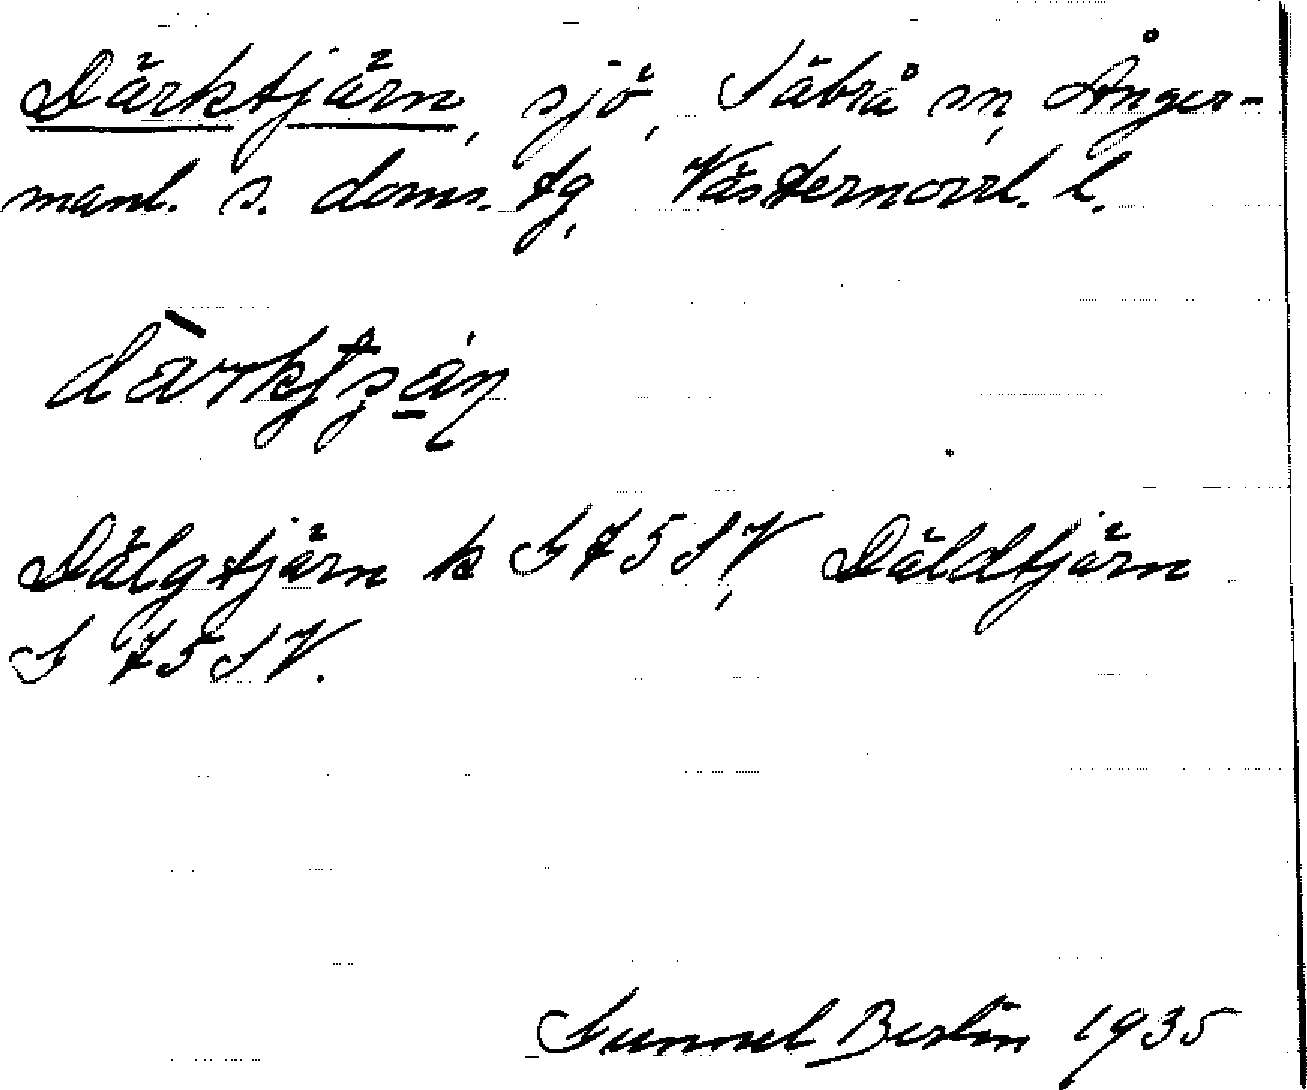 Därktjärn, sjö, Säbrå sn, Ånger-
manl. s. doms. tg, Västernorrl. l.
Dälgtjärn k G 75 SV, Däldtjärn
G 75 SV.
Gunnel Berlin 1935